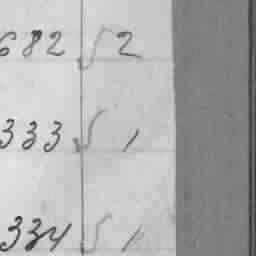 682 √ 2
333 √ 1
334 √ 1